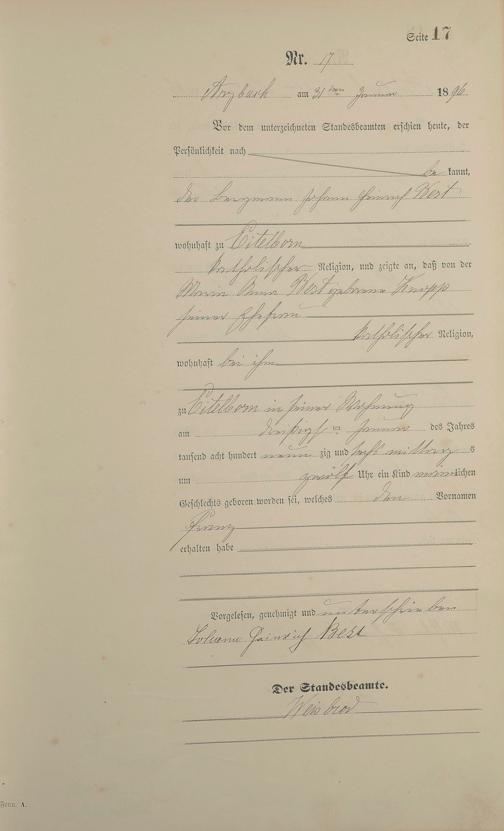 Seite 17
Nr. 17
Arzbach am 31ten Januar 1896
Vor dem unterzeichneten Standesbeamten erschien heute, der
Persönlichkeit nach
be kannt,
der Bergmann Johann Heinrich Best
wohnhaft zu Eitelborn
katholischer Religion, und zeigte an, daß von der
Maria Anna Best geborene Knopp
seiner Ehefrau
katholischer Religion,
wohnhaft bei ihm
zu Eitelborn in seiner Wohnung
am dreißigsten Januar des Jahres
tausend acht hundert neun zig und sechs mittags
um zwölf Uhr ein Kind männlichen
Geschlechts geboren worden sei, welches den Vornamen
Franz
erhalten habe
Vorgelesen, genehmigt und unterschrieben
Johann Heinrich Best
Der Standesbeamte.
Weisbrod
Form. A.